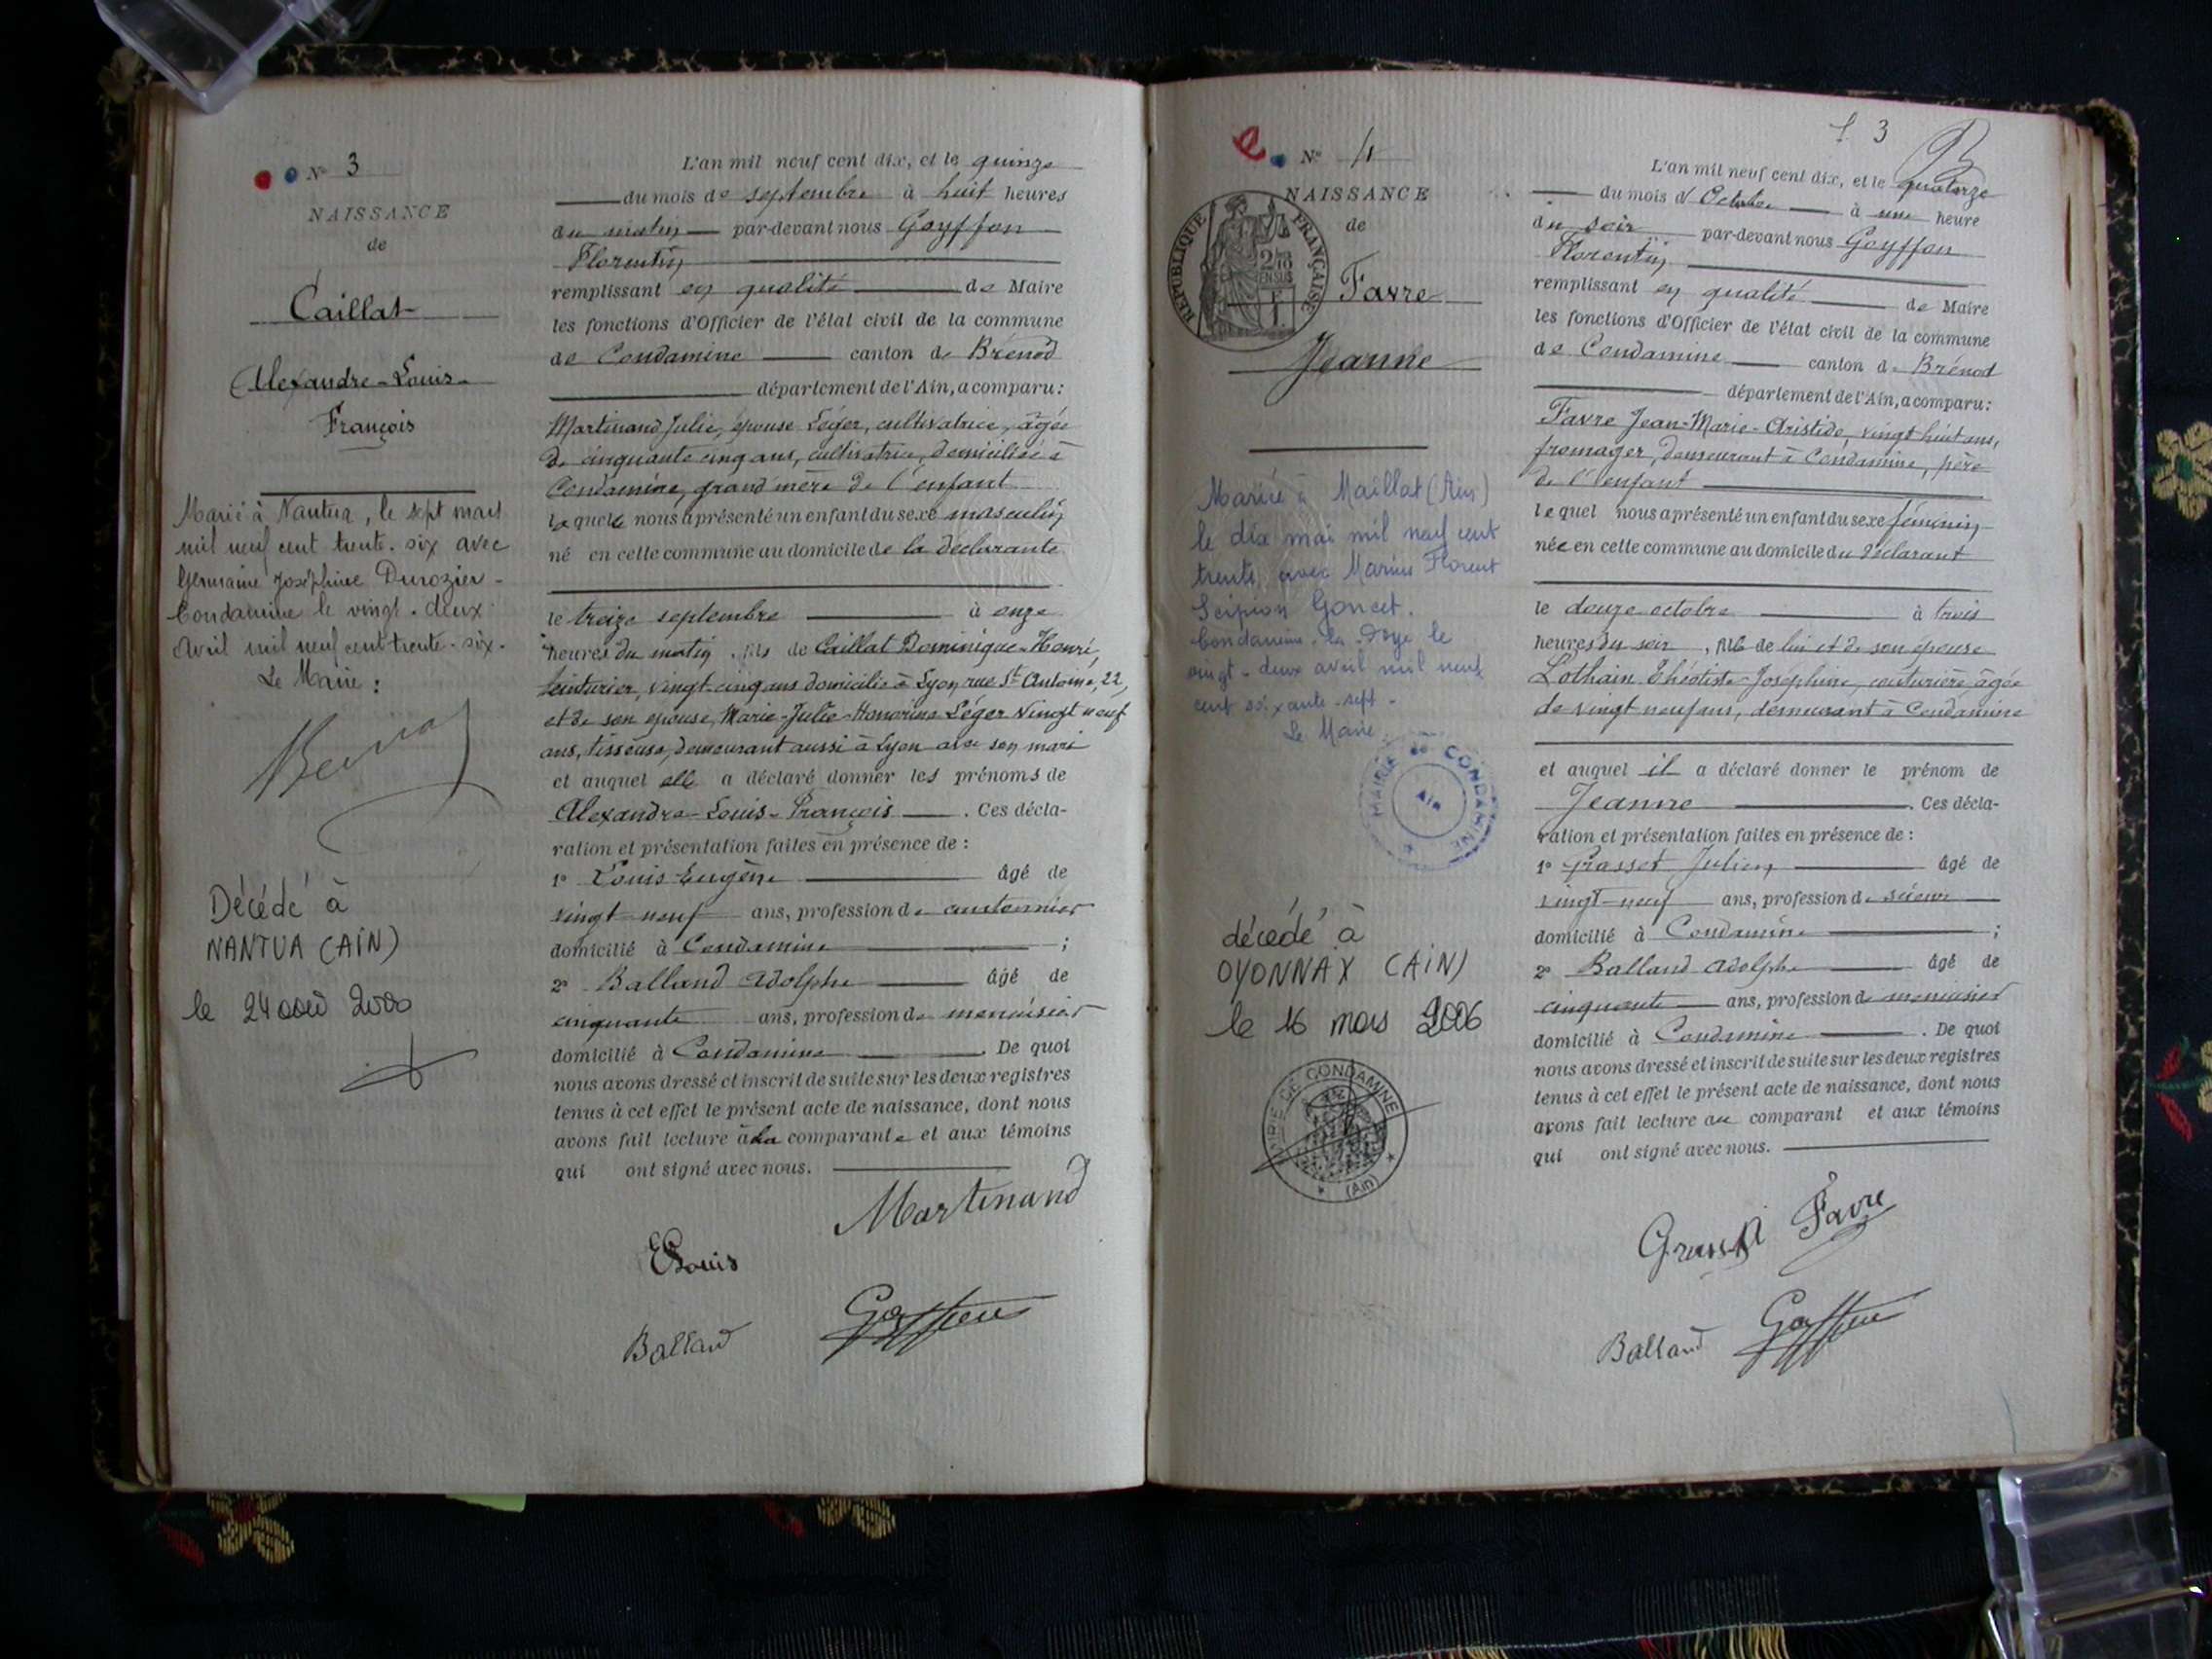 N° 3
NAISSANCE
de
Caillat
Alexandre-Louis-
François
Marié à Nantua, le sept mars
mil neuf cent trente-six avec
Germaine Joséphine Durozier -
Condamine le vingt-deux
Avril mil neuf cent trente-six.
Le Maire :
Décédé à
NANTUA (AIN)
le 24 août 2000
L'an mil neuf cent dix, et le quinze
du mois de septembre à huit heures
du matin par-devant nous Goyffon
Florentin
remplissant en qualité de Maire
les fonctions d'Officier de l'état civil de la commune
de Condamine canton de Brénod
département de l'Ain, a comparu :
Martinand Julie, épouse Léger, cultivatrice, âgée
de cinquante cinq ans, cultivatrice, domiciliée à
Condamine, grand'mère de l'enfant
laquelle nous a présenté un enfant du sexe masculin
né en cette commune au domicile de la déclarante
le treize septembre à onze
heures du matin, fils de Caillat Dominique-Henri,
teinturier, vingt-cinq ans domicilié à Lyon, rue St Antoine, 22,
et de son épouse, Marie-Julie-Honorine Léger vingt neuf
ans, tisseuse, demeurant aussi à Lyon avec son mari
et auquel elle a déclaré donner les prénoms de
Alexandre-Louis-François. Ces décla-
ration et présentation faites en présence de :
1° Louis Eugène âgé de
vingt-neuf ans, profession de cantonnier
domicilié à Condamine ;
2° Balland Adolphe âgé de
cinquante ans, profession de menuisier
domicilié à Condamine. De quoi
nous avons dressé et inscrit de suite sur les deux registres
tenus à cet effet le présent acte de naissance, dont nous
avons fait lecture à la comparante et aux témoins
qui ont signé avec nous.
Martinand
E Louis
Balland Goyffon
f. 3
N° 4
NAISSANCE
de
RÉPUBLIQUE FRANÇAISE
2/10
EN SUS
1 F.
Favre
Jeanne
Mariée à Maillat (Ain)
le dix mai mil neuf cent
trente, avec Marius Florent
Scipion Goncet.
Condamine-la-Doye le
vingt-deux avril mil neuf
cent soixante-sept.
Le Maire
MAIRIE de CONDAMINE
Ain
décédé à
OYONNAX (AIN)
le 16 mars 2006
MAIRIE DE CONDAMINE
(Ain)
L'an mil neuf cent dix, et le quatorze
du mois d'Octobre à une heure
du soir par-devant nous Goyffon
Florentin
remplissant en qualité de Maire
les fonctions d'Officier de l'état civil de la commune
de Condamine canton de Brénod
département de l'Ain, a comparu :
Favre Jean-Marie-Aristide, vingt huit ans,
fromager, demeurant à Condamine, père
de l'enfant
lequel nous a présenté un enfant du sexe féminin
née en cette commune au domicile du déclarant
le douze octobre à trois
heures du soir, fille de lui et de son épouse
Lothain Théotiste-Joséphine, couturière, âgée
de vingt neuf ans, demeurant à Condamine
et auquel il a déclaré donner le prénom de
Jeanne. Ces décla-
ration et présentation faites en présence de :
1° Grasset Julien âgé de
vingt-neuf ans, profession de scieur
domicilié à Condamine ;
2° Balland Adolphe âgé de
cinquante ans, profession de menuisier
domicilié à Condamine. De quoi
nous avons dressé et inscrit de suite sur les deux registres
tenus à cet effet le présent acte de naissance, dont nous
avons fait lecture au comparant et aux témoins
qui ont signé avec nous.
Grasset Favre
Balland Goyffon